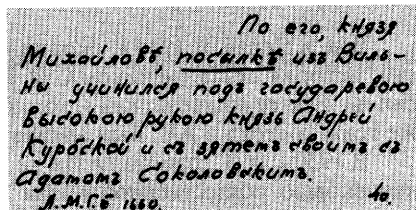 По его, князя
Михайловѣ, посылкѣ изъ Виль-
ны учинился подъ государевою
высокою рукою князь Андрей
Курбской и съ зятемъ своимъ съ
Адамомъ Соколовскимъ.
А.М.Г.б 1660. 40.